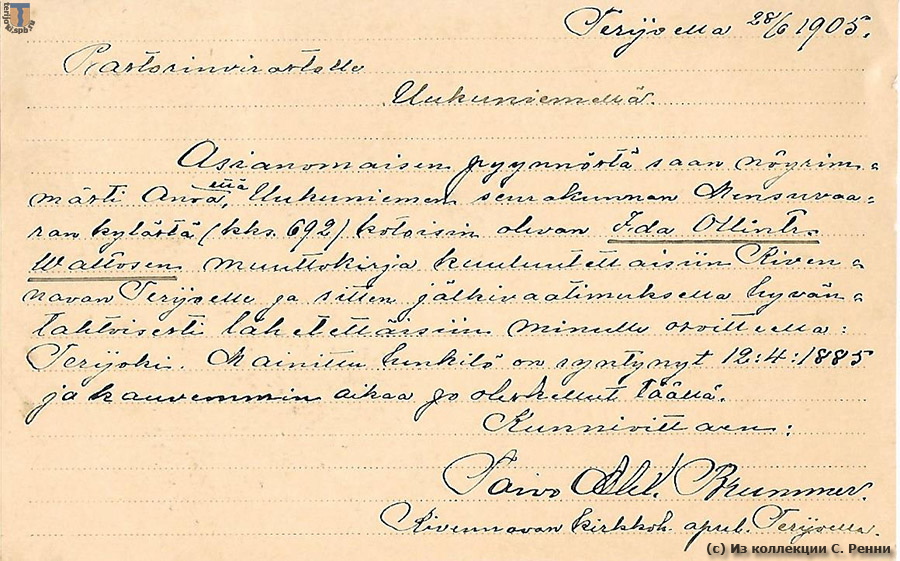 Terijoella 28/6 1905.
Pastorinvirastolle
Uukuniemellä.
Asianomaisen pyynnöstä saan nöyrim-
mästi anoa, että Uukuniemen seurakunnan Mensuvaa-
ran kylästä (kks. 692) kotoisin olevan Ida Ollintr.
Wattosen muuttokirja kuulutettaisiin Kiven-
navan Terijoelle ja sitten jälkivaatimuksella hyvän-
tahtoisesti lähetettäisiin minulle osoitteella:
Terijoki. Mainittu henkilö on syntynyt 12:4:1885
ja kauvemmin aikaa jo oleskellut täällä.
Kunnioittaen:
Toivo Brummer.
Kivennavan kirkkoh. apul. Terijoella.
(c) Из коллекции С. Ренни